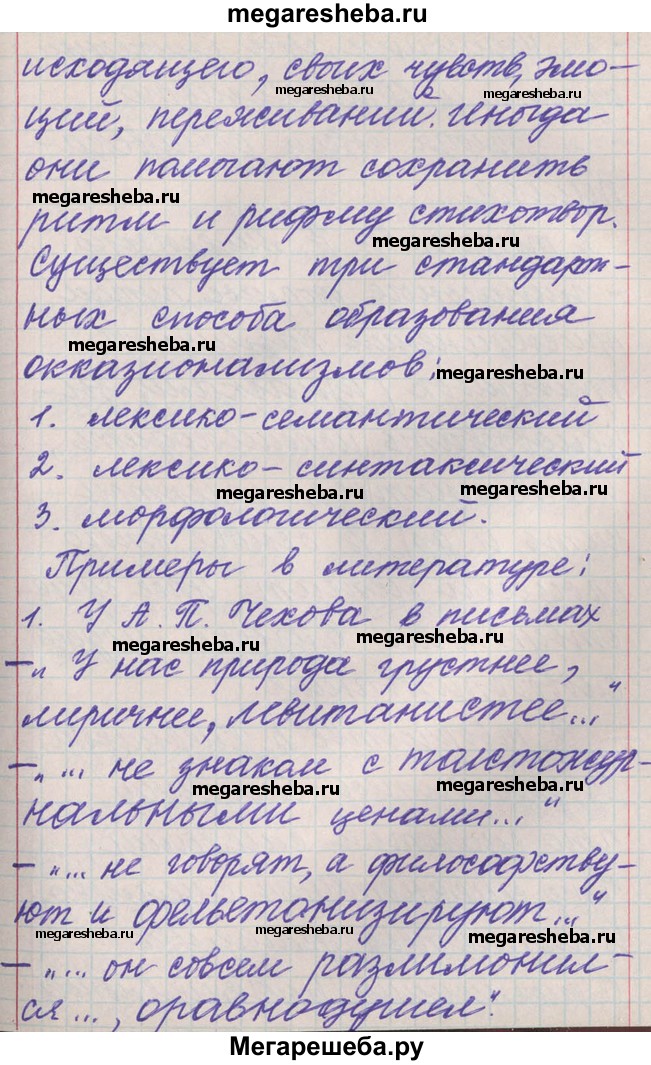 megaresheba.ru
исходящего, своих чувств, эмо-
megaresheba.ru megaresheba.ru
ций, переживаний. Иногда
они помогают сохранить
megaresheba.ru
ритм и рифму стихотвор.
megaresheba.ru
Существует три стандарт-
ных способа образования
megaresheba.ru
окказионализмов:
megaresheba.ru
1. лексико-семантический
2. лексико-синтаксический
megaresheba.ru megaresheba.ru
3. морфологический.
Примеры в литературе:
1. У А. П. Чехова в письмах
megaresheba.ru megaresheba.ru
- „У нас природа грустнее,
лиричнее, левитанистее..."
- „... не знаком с толстожур-
megaresheba.ru megaresheba.ru
нальными ценами..."
- „... не говорят, а философству-
ют и фельетонизируют..."
megaresheba.ru megaresheba.ru megaresheba.ru
- „... он совсем разлимонил-
ся..., оравнодушел".
Мегарешеба.ру